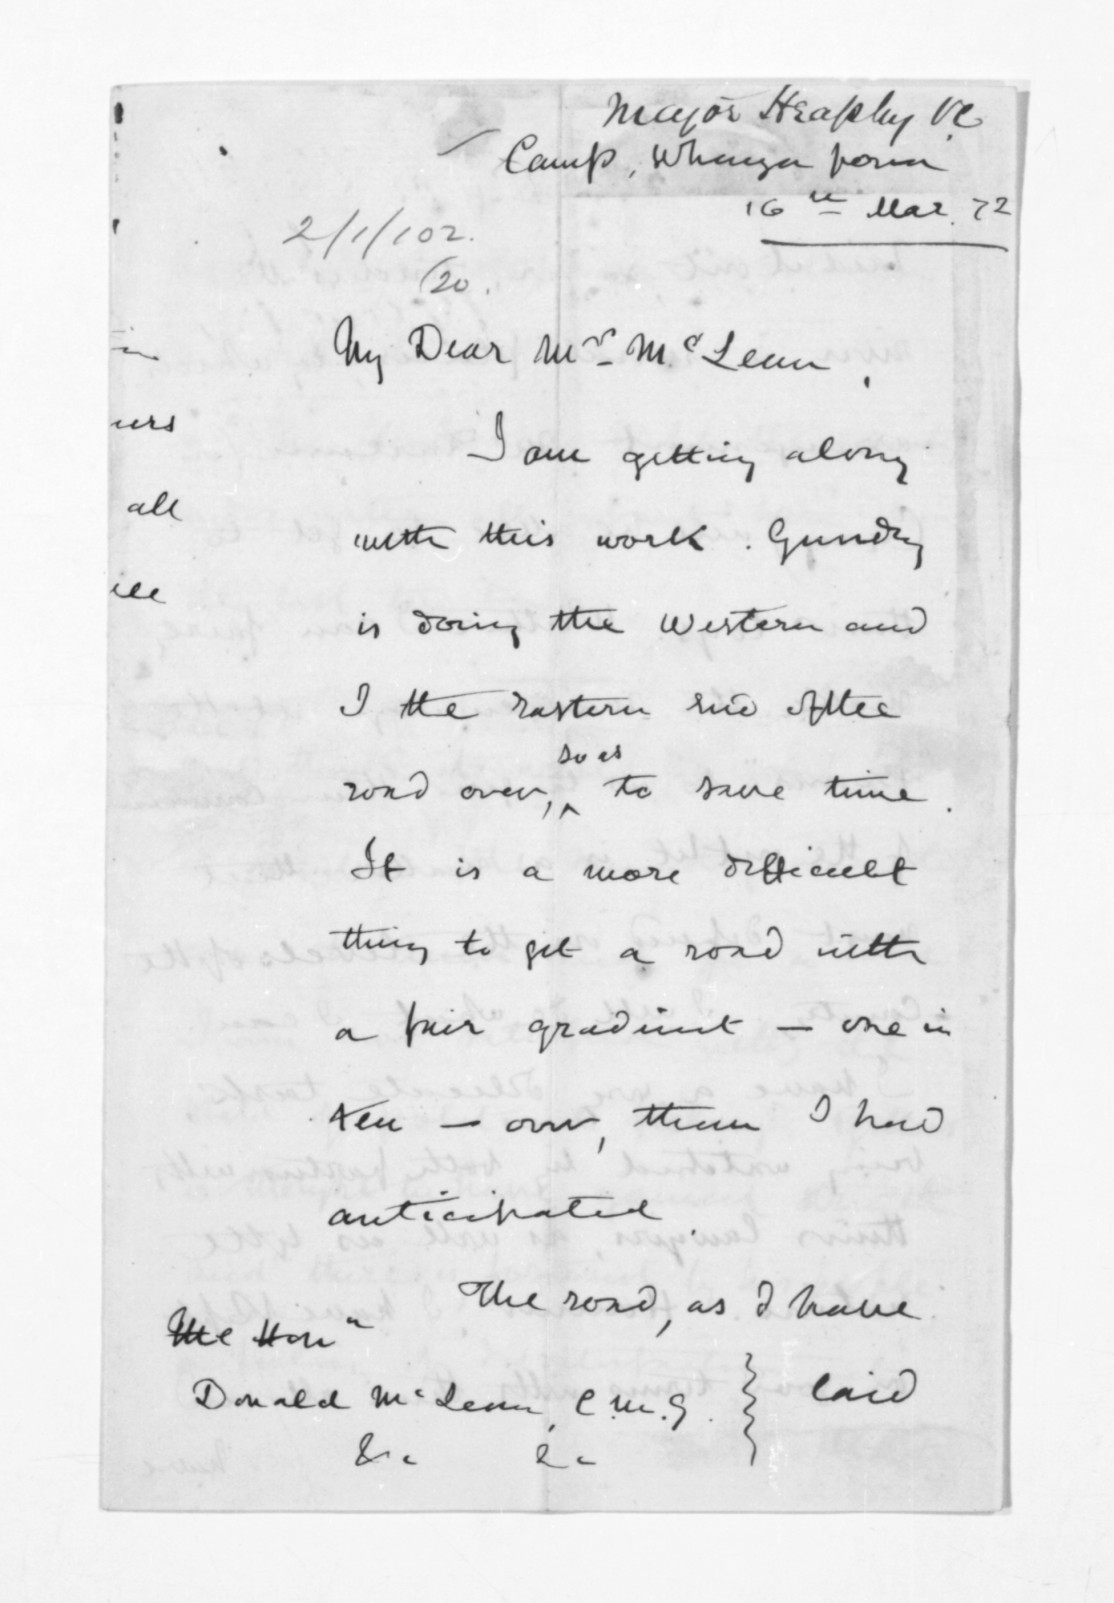 Major Heaphy VC
Camp, Whanga
16th Mar. 72
2/1/102.
/20.
My Dear Mr McLean,
I am getting along
with this work. Gundry
is doing the Western and
I the Eastern end of the
road over, so as to save time.
It is a more difficult
thing to get a road with
a fair gradient — one in
ten — over, than I had
anticipated
The road, as I have
The Honn
Donald McLean, C.M.G. } laid
&c &c
urs
all